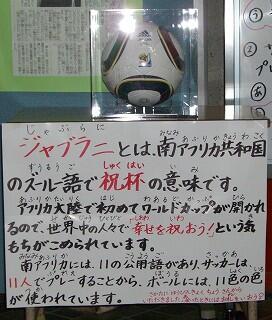 ジャブラニとは、南アフリカ共和国
のズールー語で祝杯の意味です。
アフリカ大陸で初めてワールドカップが開かれ
るので、世界中の人々で幸せを祝おう！という気
もちがこめられています。
南アフリカには、11の公用語があり、サッカーは、
11人でプレーすることから、ボールには、11色の色
が使われています。